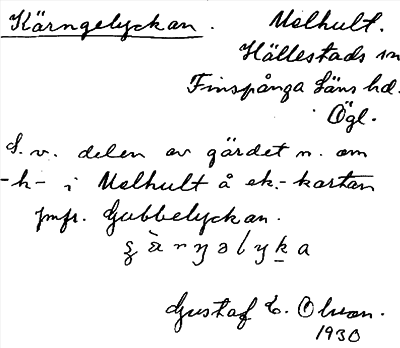 Kärngelyckan. Melhult.
Hällestads sn
Finspånga läns hd.
Ögl.
S.v. delen av gärdet n. om
-h- i Melhult å ek.-kartan
jmfr. Gubbelyckan.
Gustaf E. Olson.
1930